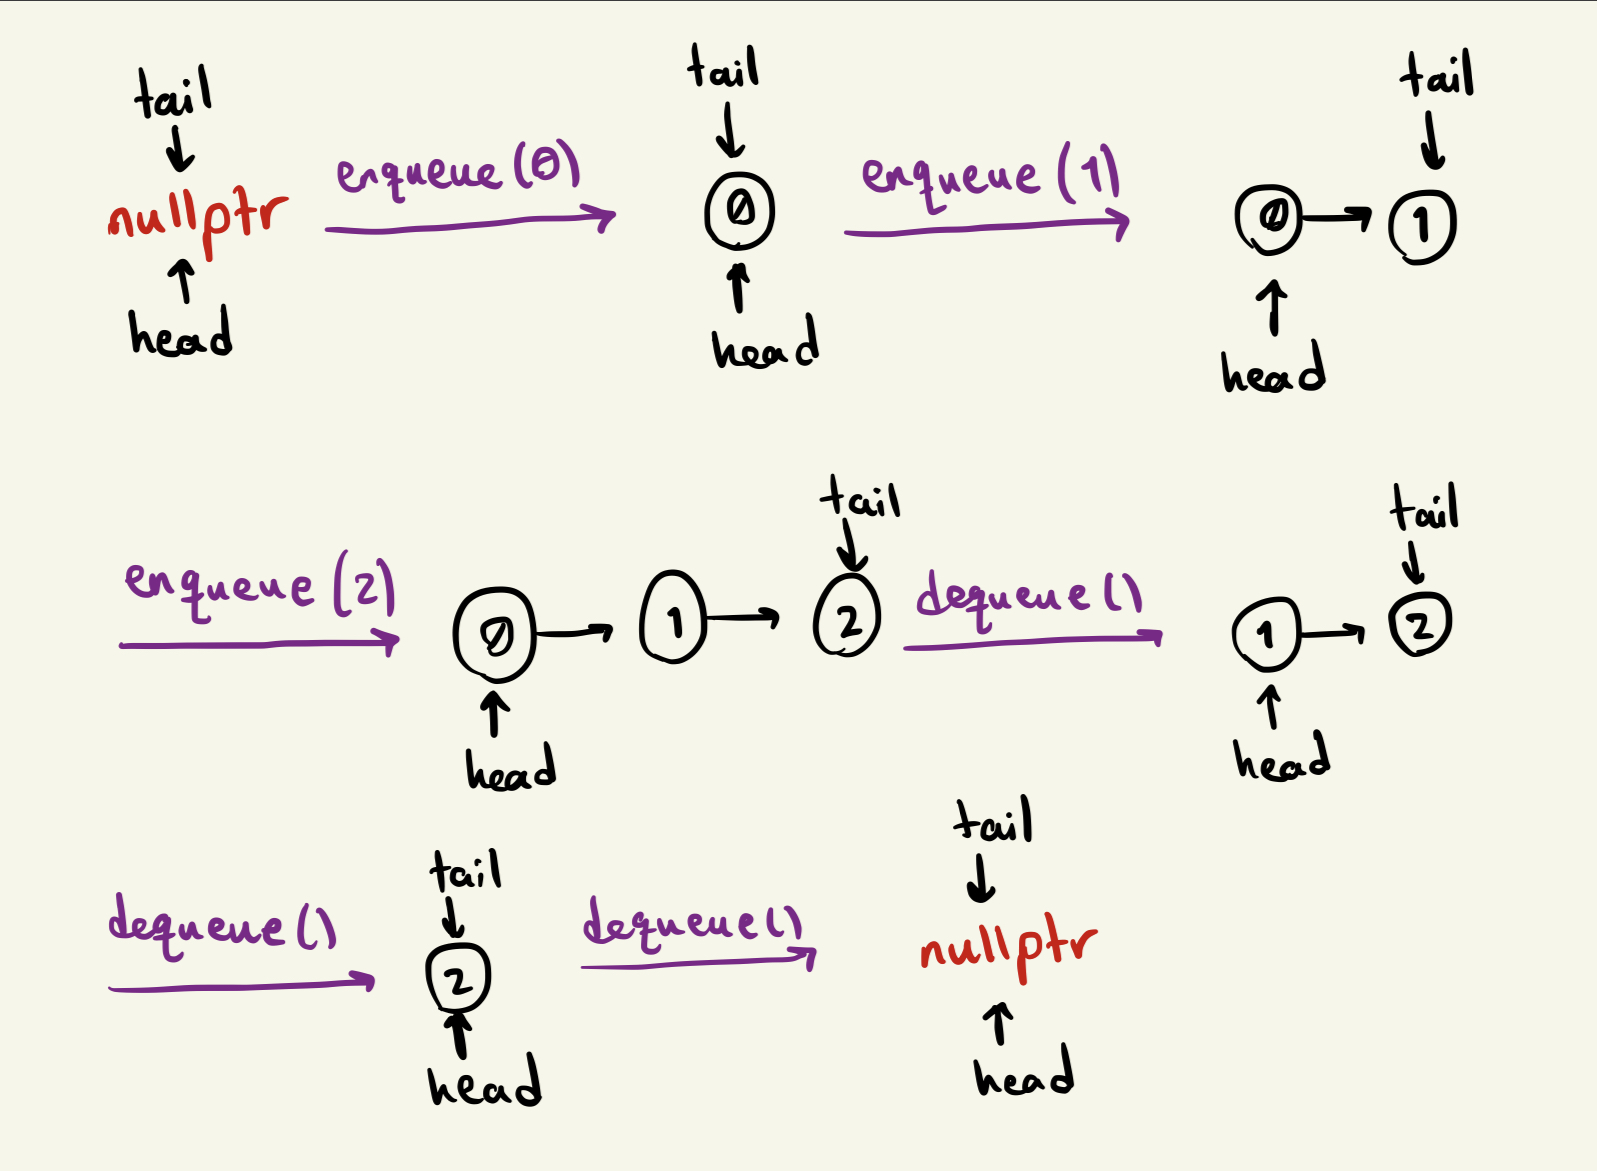 tail
nullptr
head
enqueue (0)
tail
0
head
enqueue (1)
tail
0 1
head
enqueue (2)
tail
0 1 2
head
dequeue ()
tail
1 2
head
dequeue ()
tail
2
head
dequeue ()
tail
nullptr
head